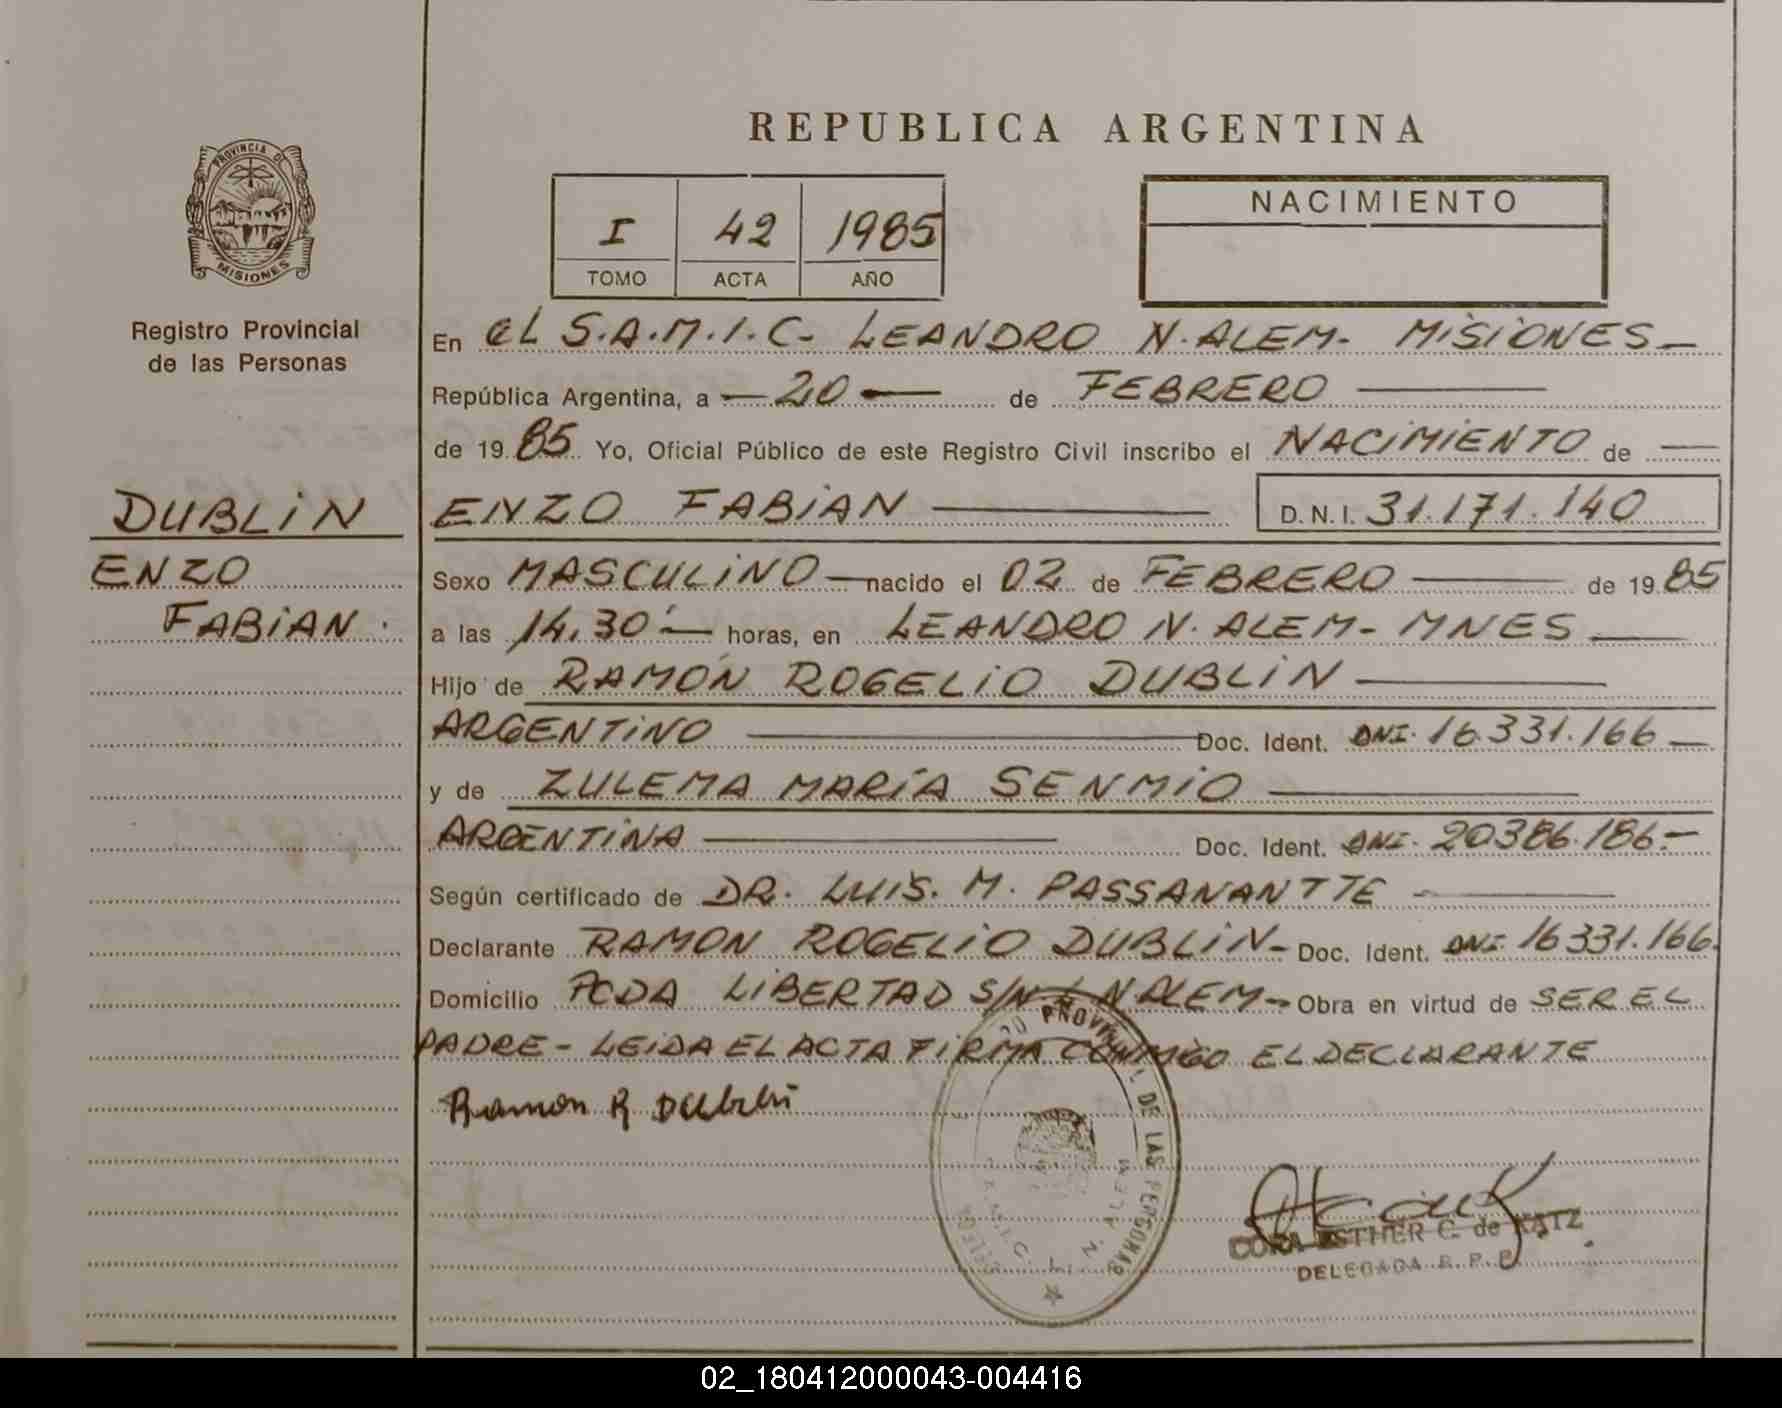 REPUBLICA ARGENTINA
PROVINCIA DE
MISIONES
Registro Provincial
de las Personas
I 42 1985
TOMO ACTA AÑO
NACIMIENTO
En EL S.A.M.I.C- LEANDRO N. ALEM- MISIONES-
República Argentina, a -20- de FEBRERO
de 1985 Yo, Oficial Público de este Registro Civil inscribo el NACIMIENTO de
DUBLIN
ENZO
FABIAN.
ENZO FABIAN D.N.I. 31.171.140
Sexo MASCULINO - nacido el 02 de FEBRERO de 1985
a las 14,30'- horas, en LEANDRO N. ALEM- MNES
Hijo de RAMÓN ROGELIO DUBLIN
ARGENTINO Doc. Ident. DNI. 16.331.166-
y de ZULEMA MARÍA SENMIO
ARGENTINA Doc. Ident. DNI. 20386.186.-
Según certificado de DR. LUIS. M. PASSANANTTE
Declarante RAMON ROGELIO DUBLIN- Doc. Ident. DNI 16331.166.
Domicilio PCDA LIBERTAD S/N L N ALEM- Obra en virtud de SER EL
PADRE- LEIDA EL ACTA FIRMA CONMIGO EL DECLARANTE
Ramon R Dublin
DE LAS PERSONAS
S.A.M.I.C. L. N. ALEM
CORA ESTHER C. de KATZ
DELEGADA R. P. P
02_180412000043-004416